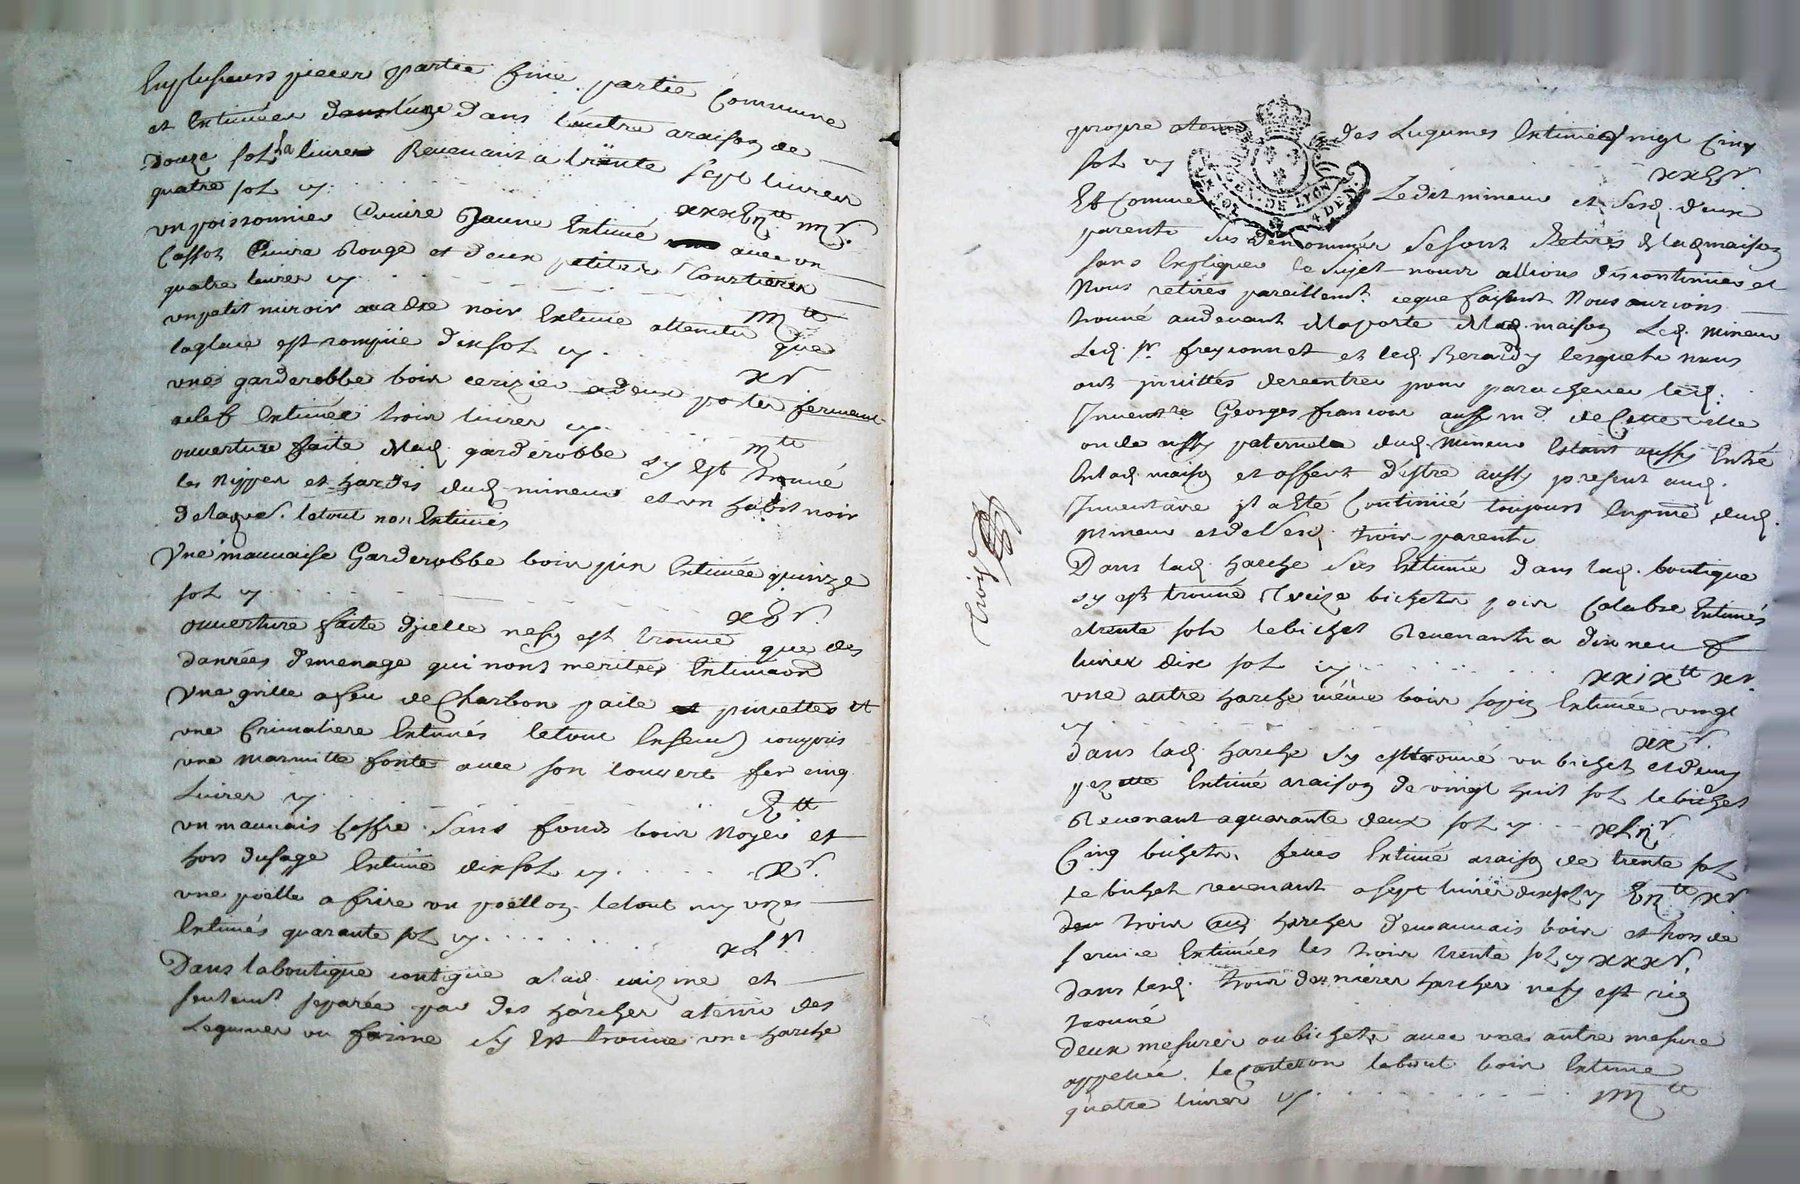 En plusieurs pieces partie fine partie Commune
et Estimées dans l'une dans l'autre a raison de
Douze sols la livre Revenant a trente sept livres
quatre sol cy
xxxvij tt iiij s.
un poissonnier Cuivre Jaune Estimé avec un
Casson Cuivre Rouge et deux petites
quatre livres cy
iiij tt
un petit miroir quadre noir Estimé attendu que
la glace est rompüe dix sol cy
x s
une garderobbe bois cerizier a deux portes fermant
a clef Estimée trois livres cy
iij tt
ouverture faite de lad. garderobbe sy est trouvé
les nippes et hardes dud. mineur et un habit noir
le tout non Estimés
Une mauvaise Garderobbe bois pin Estimée quinze
sol cy
xv s.
ouverture faite d'jcelle ne sy est trouvé que des
danrées de menage qui n'ont meritées Estimaon
Une grille a feu de Charbon paile pincettes et
une Crimaliere Estimés le tout Ensemb compris
une marmitte fonte avec son couvert fer cinq
Livres cy
v tt
un mauvais Coffre sans fonds bois Noyer et
hors dusage Estimé dix sol cy
x s.
une poëlle a frire un poëllon le tout my uzés
Estimés quarante sol cy
xL s
Dans la boutique contigüe a lad. cuizine et
seulemt separée par des harches a tenir des
Legumes ou farine sy Est trouvé une harche
propre a tenir des Legumes Estimée vingt cinq
sol cy
xxv s.
Et Comme Ledit mineur et sesd. deux
parents sus denommés se sont Retirés de lad. maison
sans Expliquer le sujet nous allions discontinués et
Nous retirés pareillemt. ce que faisant Nous aurions
trouvé au devant de la porte de lad. maison Led. mineur
Led. Sr. freyconnet et led. Berardy lesquels nous
ont invittés de rentrer pour parachever led.
Inventre Georges françois aussy md. de Cette ville
oncle aussy paternel dud. mineur Estant aussy Entré
En lad. maison et offert d'estre aussy present aud.
Inventaire jl a Eté Continüé toujours En pnce dud.
mineur et de Sesd. trois parents
Dans lad. harche sus Estimée dans lad. boutique
sy est trouvé treize bichets pois Estimés
a trente sols le bichet Revenant a dix neuf
livres dix sol cy
xxixtt xs.
une autre harche même bois sapin Estimée vingt
cy
xx s.
Dans lad. harche sy est trouvé un bichet et demy
Estimé a raison de vingt huit sol le bichet
Revenant a quarante deux sol cy
xLij s
Cinq bichets feves Estimé a raison de trente sol
le bichet revenant a sept livres dix sol cy vij tt x s
trois harches de mauvais bois et hors de
service Estimées les trois trente sol cy xxx s.
dans lesd. trois dernieres harches ne sy est rien
trouvé
deux mesures ou bichets avec une autre mesure
appellée le Carteron le tout bois Estimé
quatre livres cy
iiij tt